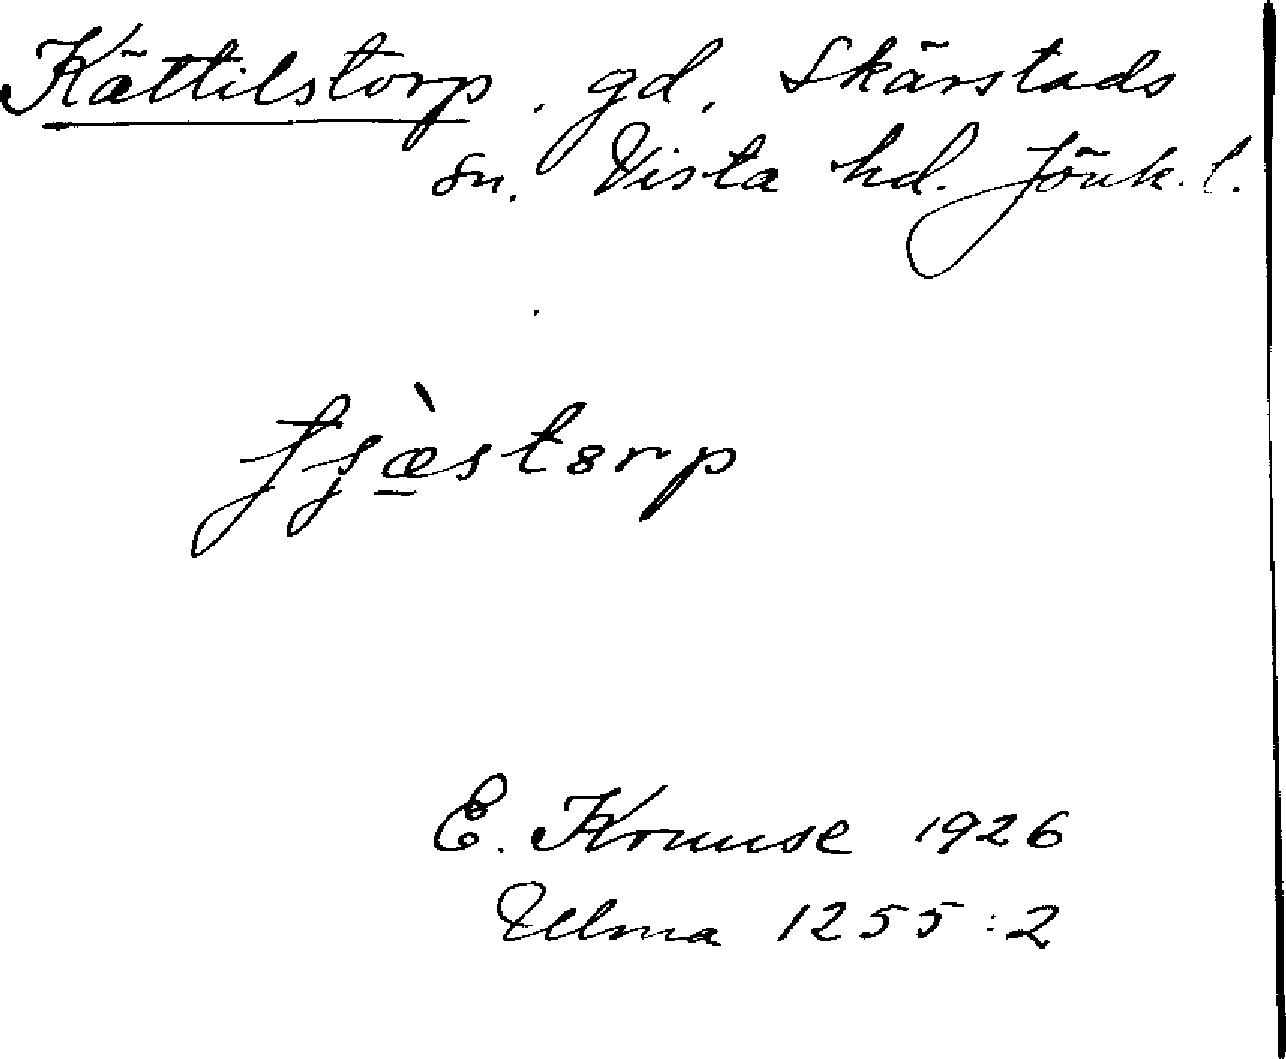 Kättilstorp. gd. Skärstads
sn. Vista hd. Jönk. l.
fʝæ̠̀storp
E. Kruuse 1926
Ulma 1255:2